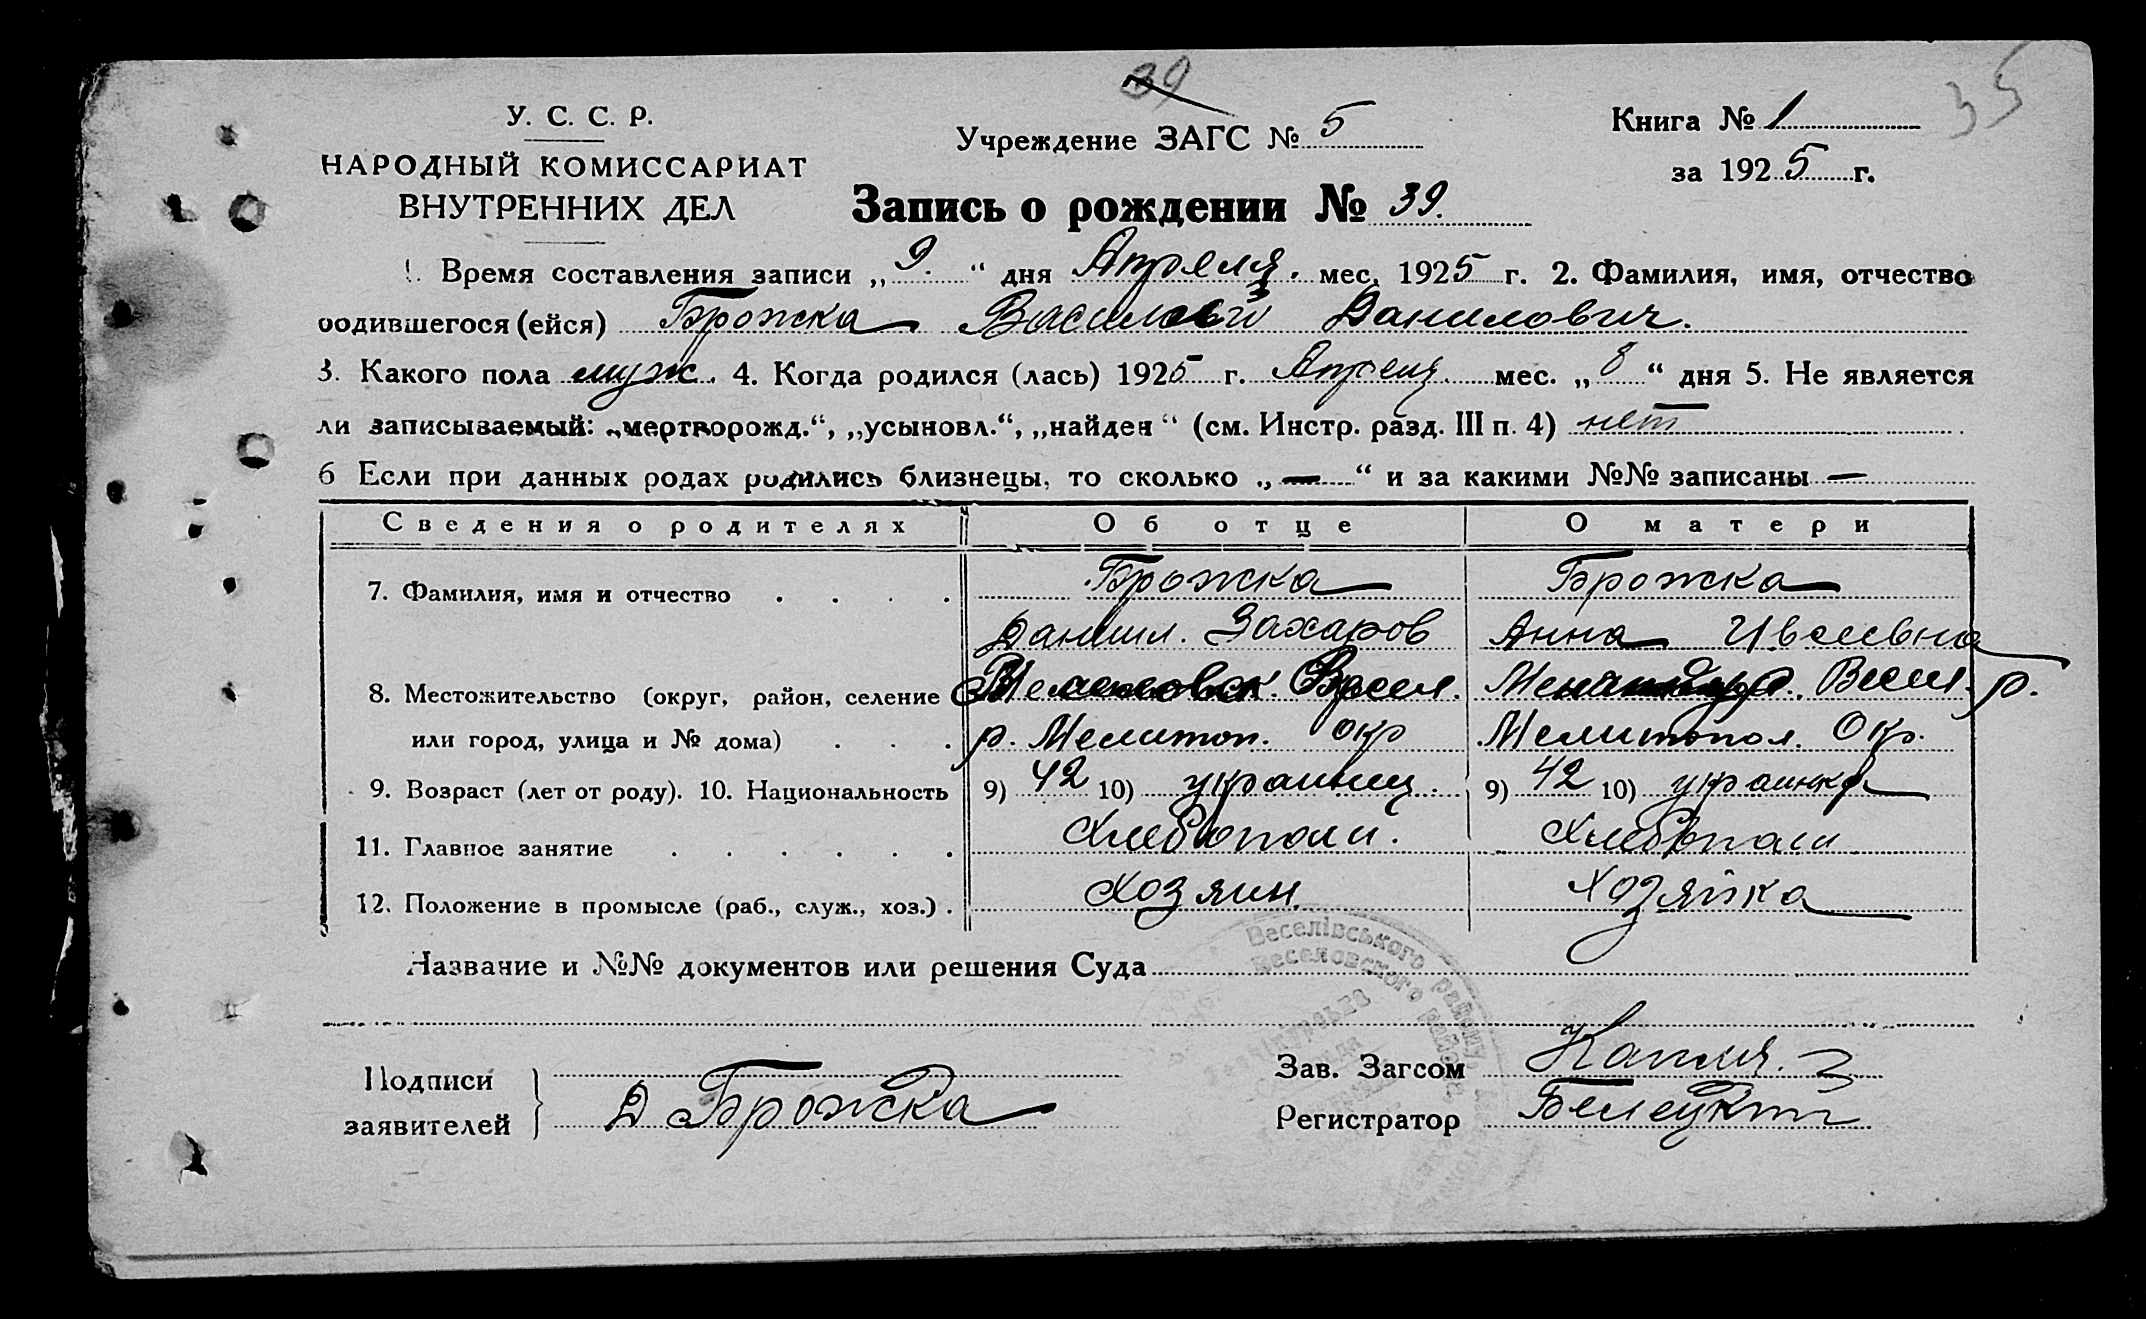 39
35
У. С. С. Р.
НАРОДНЫЙ КОМИССАРИАТ
ВНУТРЕННИХ ДЕЛ
Учреждение ЗАГС № 5
Книга № 1
за 1925 г.
Запись о рождении № 39.
1. Время составления записи „ 9. “ дня Апреля. мес. 1925 г. 2. Фамилия, имя, отчество
родившегося (ейся) Брожка Василий Данилович.
3. Какого пола муж. 4. Когда родился (лась) 1925 г. Апреля. мес. „ 8 “ дня 5. Не является
ли записываемый: „мертворожд.“, „усыновл.“, „найден“ (см. Инстр. разд. III п. 4) нет
6 Если при данных родах родились близнецы, то сколько „ — “ и за какими №№ записаны —
Сведения о родителях Об отце О матери
7. Фамилия, имя и отчество Брожка Брожка
Данил. Захаров Анна
8. Местожительство (округ, район, селение Весел. Весел. р.
или город, улица и № дома) р. Мелитоп. окр Мелитопол. Окр.
9. Возраст (лет от роду). 10. Национальность 9) 42 10) украинец. 9) 42 10) украинка
11. Главное занятие Хлебопаш. Хлебопаш
12. Положение в промысле (раб., служ., хоз.) Хозяин Хозяйка
Название и №№ документов или решения Суда
Веселівського району
Веселовского района
Подписи
заявителей
Д Брожка
Зав. Загсом Капля.
Регистратор Белецкий